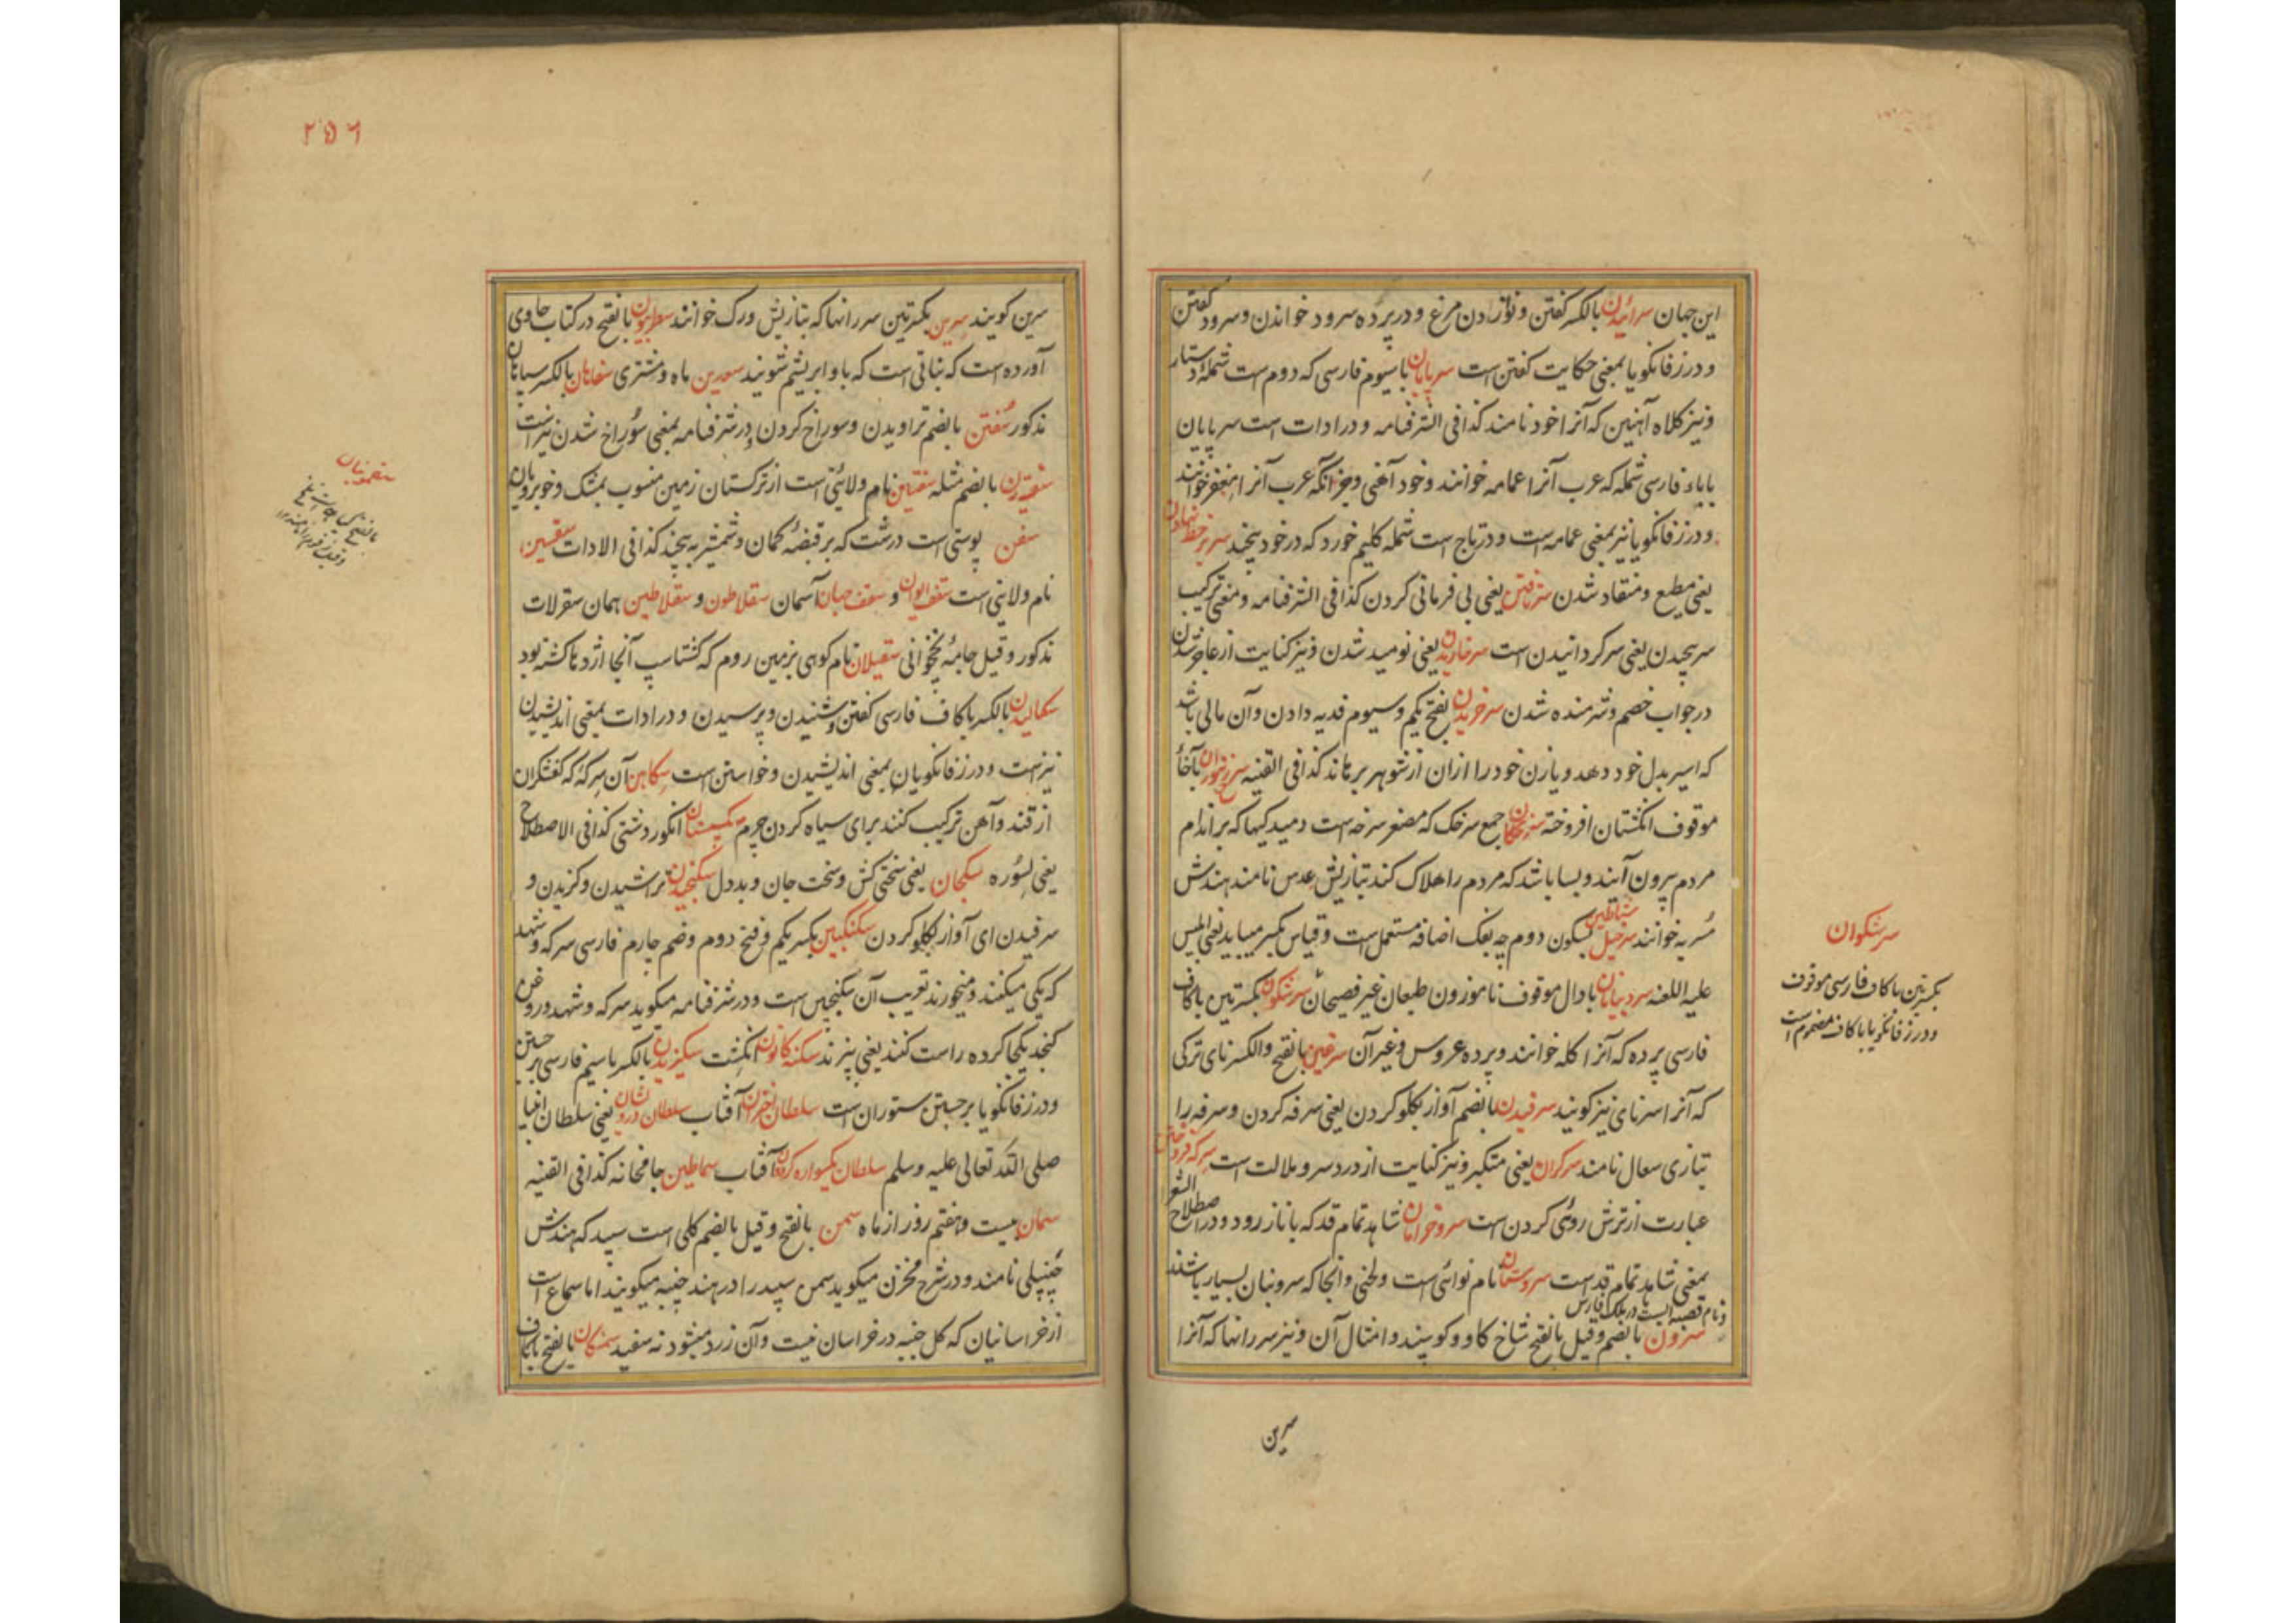 این جهان سرائیدن بالکسر گفتن و نواز دن مرغ و در پرده سرود خواندن و سرود گفتن
و در زفانگویا بمعنی حکایت گفتن است سرپایان با سیوم فارسی که دوم است شمله دستار
و نیز کلاه آهنین که آنرا خود نامند کذا فی الشرفنامه و در ادات است سرپایان
با باء فارسی شمله که عرب آنرا عمامه خوانند و خود آهنی و جز آنکه عرب آنرا مغفر خوانند
و در زفانگویا نیز بمعنی عمامه است و در تاج است شمله کلیم خورد که در خود پیچند سر بر خط نهادن
یعنی مطیع و منقاد شدن سرتافتن یعنی بی فرمانی کردن کذا فی الشرفنامه و معنی ترکیب
سر پیچیدن یعنی سر گردانیدن است سر خاریدن یعنی نومید شدن و نیز کنایت از عاجز شدن
در جواب خصم و شرمنده شدن سرخریدن بفتح یکم و سیوم فدیه دادن و آن مالی باشد
که اسیر بدل خود دهد و یا زن خود را ازان از شوهر برهاند کذا فی القنیه سرخ زنبوران با خاء
موقوف انگشتان افروخته سرخکان جمع سرخک که مصغر سرخه است دمیدگیها که بر اندام
مردم بیرون آیند و بسا باشد که مردم را هلاک کند بتازیش عدس نامند هندش
مسریه خوانند سرخیل شیاطین بسکون دوم چه بفک اضافه مستعمل است و قیاس بکسر میباید یعنی ابلیس
علیه اللعنه سردبیانان با دال موقوف ناموزون طبعان غیر فصیحان سرشکون بکسرتین با کاف
فارسی پرده که آنرا کله خوانند و پرده عروس و غیر آن سرغین بالفتح والکسر نای ترکی
که آنرا سرنای نیز گویند سرفیدن بالضم آواز بگلو کردن یعنی سرفه کردن و سرفه را
بتازی سعال نامند سرگران یعنی متکبر و نیز کنایت از درد سر و ملالت است سرکه فروختن
عبارت از ترش روئی کردن است سرو خرامان شاهد تمام قد که با ناز رود و در اصطلاح الشعرا
بمعنی شاهد تمام قد است سروستان نام نوائی است و لحنی و آنجا که سرو بنان بسیار باشند
و نام قصبه ایست در ملک فارس
سرون بالضم و قیل بالفتح شاخ گاو و گوسپند و امثال آن و نیز سر رانها که آنرا
سرین
سرشکوان
بکسرتین با کاف فارسی موقوف
و در زفانگویا با کاف مضموم است
۲۵۶
سرین گویند سرین بکسرتین سر رانها که بتازیش ورک خوانند سطربیون بالفتح در کتاب حاوی
آورده است که نباتی است که باو ابریشم شویند سعدین ماه و مشتری سفاهان بالکسر سپاهان
مذکور سفتن بالضم تراویدن و سوراخ کردن و در شرفنامه بمعنی سوراخ شدن نیز است
سفتیدن بالضم مثله سقتین نام ولایتی است از ترکستان زمین منسوب بمشک و خوبرویان
سفن پوستی است درشت که بر قبضه کمان و شمشیر پیچند کذا فی الادات سقسین
نام ولایتی است سقف ایوان و سقف جهان آسمان سقلاطون و سقلاطین همان سقرلات
مذکور و قیل جامه نخجوانی سقیلان نام کوهی بزمین روم که گشتاسپ آنجا اژدها کشته بود
سکالیدن بالکسر با کاف فارسی گفتن و شنیدن و پرسیدن و در ادات بمعنی اندیشیدن
نیز است و در زفانگویا بمعنی اندیشیدن و خواستن است سکاهن آن سرکه که کفشگران
از قند و آهن ترکیب کنند برای سیاه کردن چرم انگور دشتی کذا فی الاصطلاح
یعنی سوره سکجان یعنی سختی کش و سخت جان و بد دل سکنجیدن تراشیدن و گزیدن و
سرفیدن ای آواز بگلو کردن سکنگبین بکسر یکم و فتح دوم و ضم چارم فارسی سرکه و شهد
که یکی میکنند و میخورند تعریب آن سکنجبین است و در شرفنامه میگوید سرکه و شهد و روغن
کنجد یکجا کرده راست کنند یعنی پزند سکنه کانون انگشت سکیزیدن بالکسر با سیم فارسی بر جستن
و در زفانگویا بر جستن ستوران است سلطان اختران آفتاب سلطان درویشان یعنی سلطان انبیا
صلی الله تعالی علیه وسلم سلطان یکسواره گردون آفتاب سماطین جامخانه کذا فی القنیه
سمان بیست و هفتم روز از ماه سمن بالفتح و قیل بالضم گلی است سپید که هندش
چنپیلی نامند و در شرح مخزن میگوید سمن سپید را در هند چنبه میگویند اما سماع است
از خراسانیان که گل چنبه در خراسان نیست و آن زرد میشود نه سفید سمنگان بالفتح با کاف